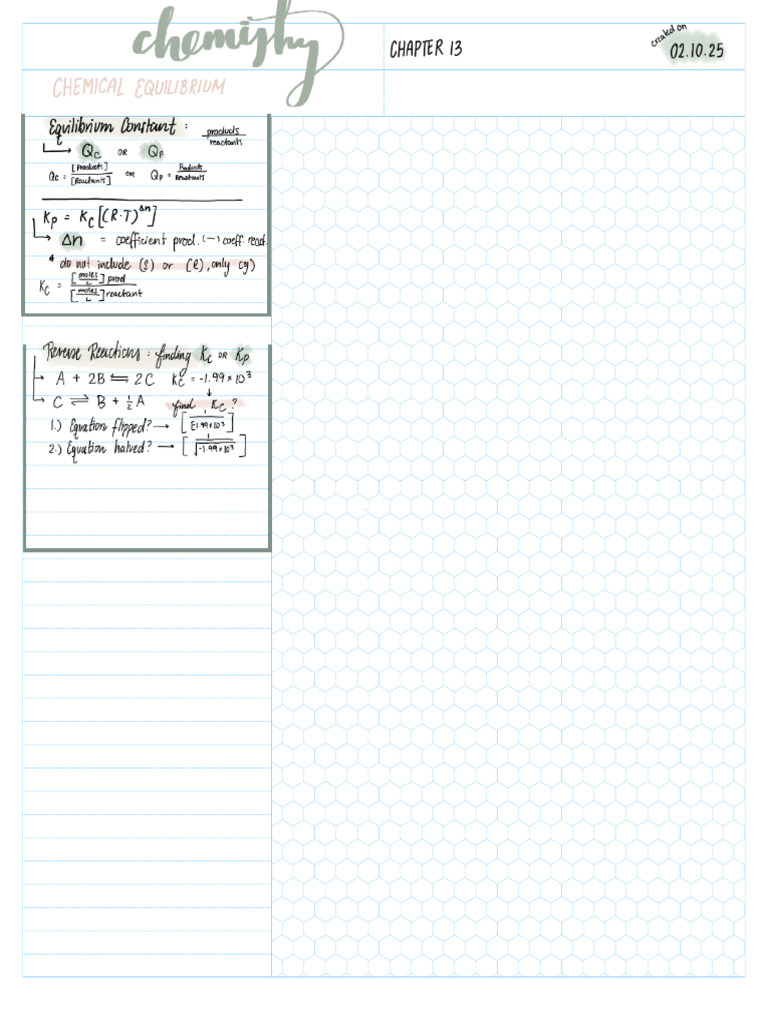 chemistry
CHAPTER 13
created on
02.10.25
CHEMICAL EQUILIBRIUM
Equilibrium Constant : products / reactants
Qc OR Qp
Qc = [Products] / [Reactants] OR Qp = Products / Reactants
Kp = Kc[(R·T)^Δn]
Δn = coefficient prod. (−) coeff. react.
* do not include (s) or (l), only (g)
Kc = [moles/L] prod / [moles/L] reactant
Reverse Reactions : finding Kc OR Kp
A + 2B ⇌ 2C Kc = -1.99 × 10³
↓
C ⇌ B + ½A find Kc ?
1.) Equation flipped? → [1 / [1.99×10³]]
2.) Equation halved? → [1 / √-1.99×10³]